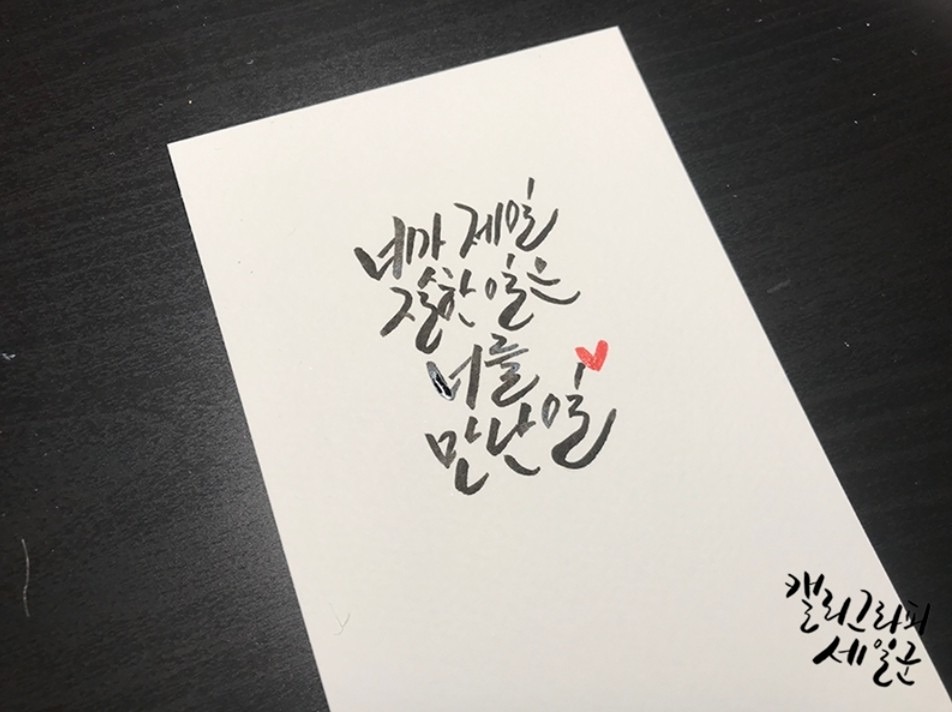 제일
잘한 일은
너를
만난 일
캘리그라피
세일군